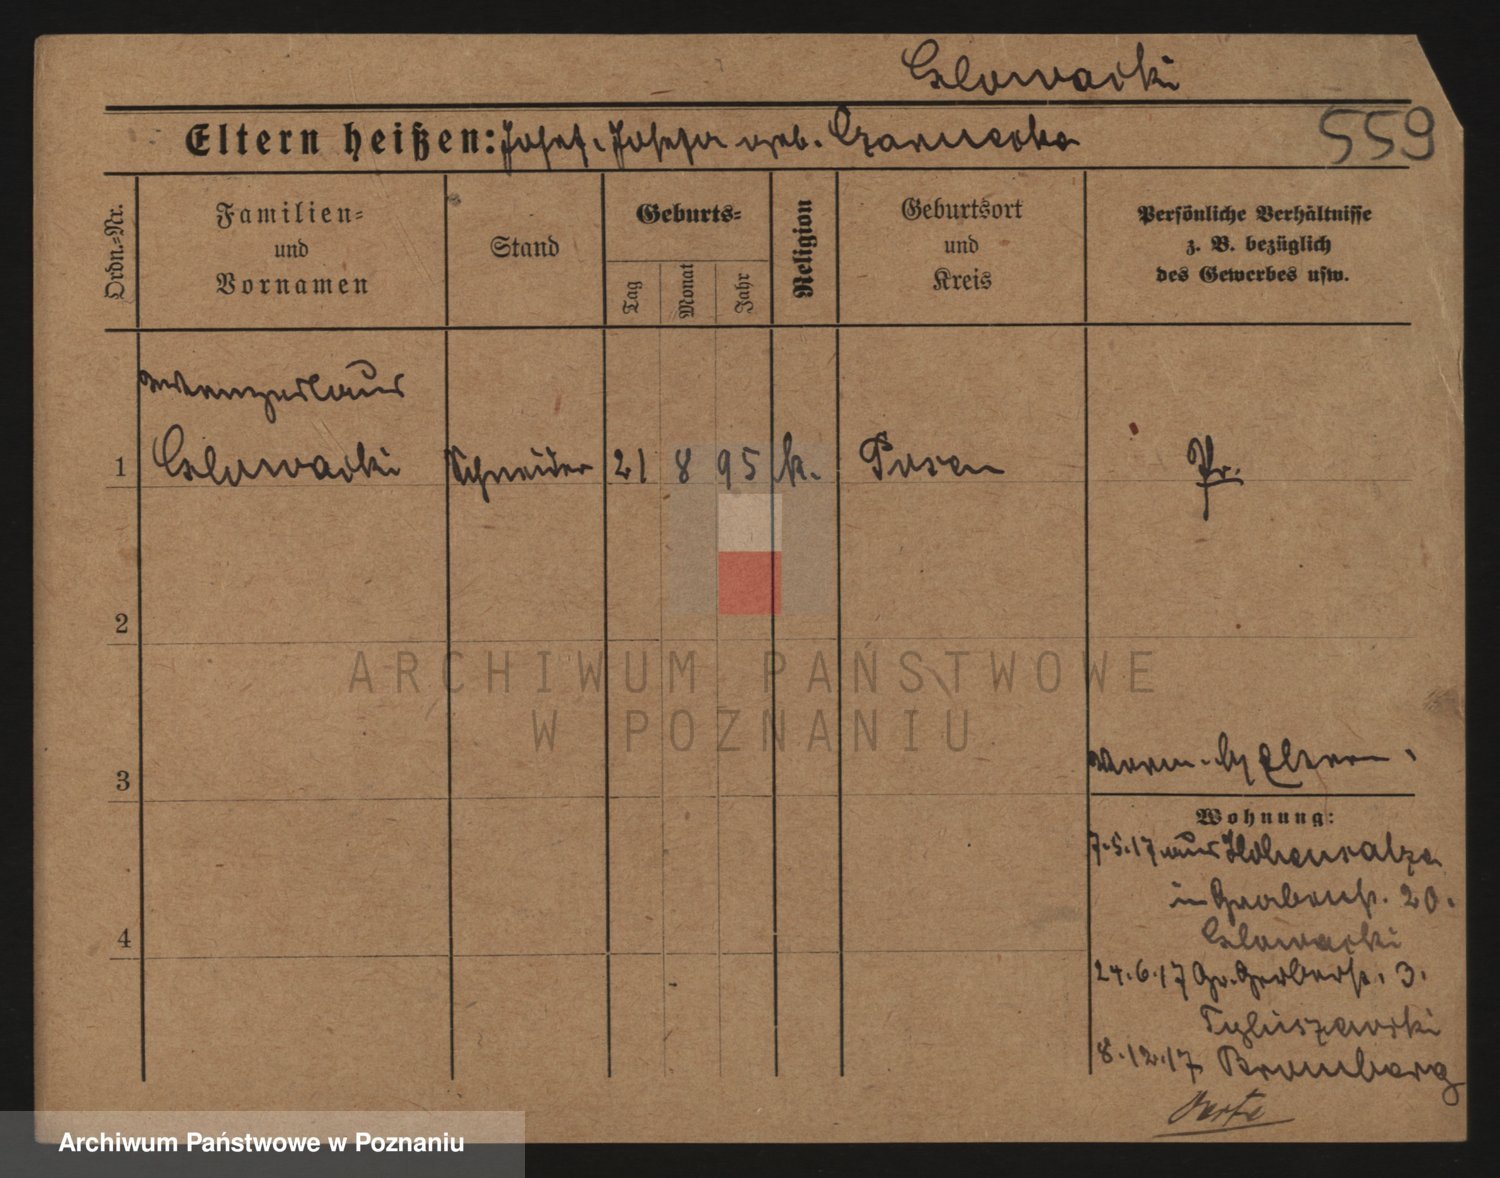 Glowacki
559
Eltern heißen: Josef. Josefa geb. Czarnecka
Ordn.-Nr.
Familien-
und
Vornamen
Stand
Geburts-
Tag
Monat
Jahr
Religion
Geburtsort
und
Kreis
Persönliche Verhältnisse
z. B. bezüglich
des Gewerbes usw.
Wenzeslaus
1 Glowacki Schneider 21 8 95 k. Posen Pr.
2
ARCHIWUM PAŃSTWOWE
W POZNANIU
3
Eltern
Wohnung:
7.5.17 aus Hohensalza
in Grabenstr. 20.
Glowacki
4
24.6.17 Gr. Gerberstr. 3.
8.12.17 Bromberg
Archiwum Państwowe w Poznaniu